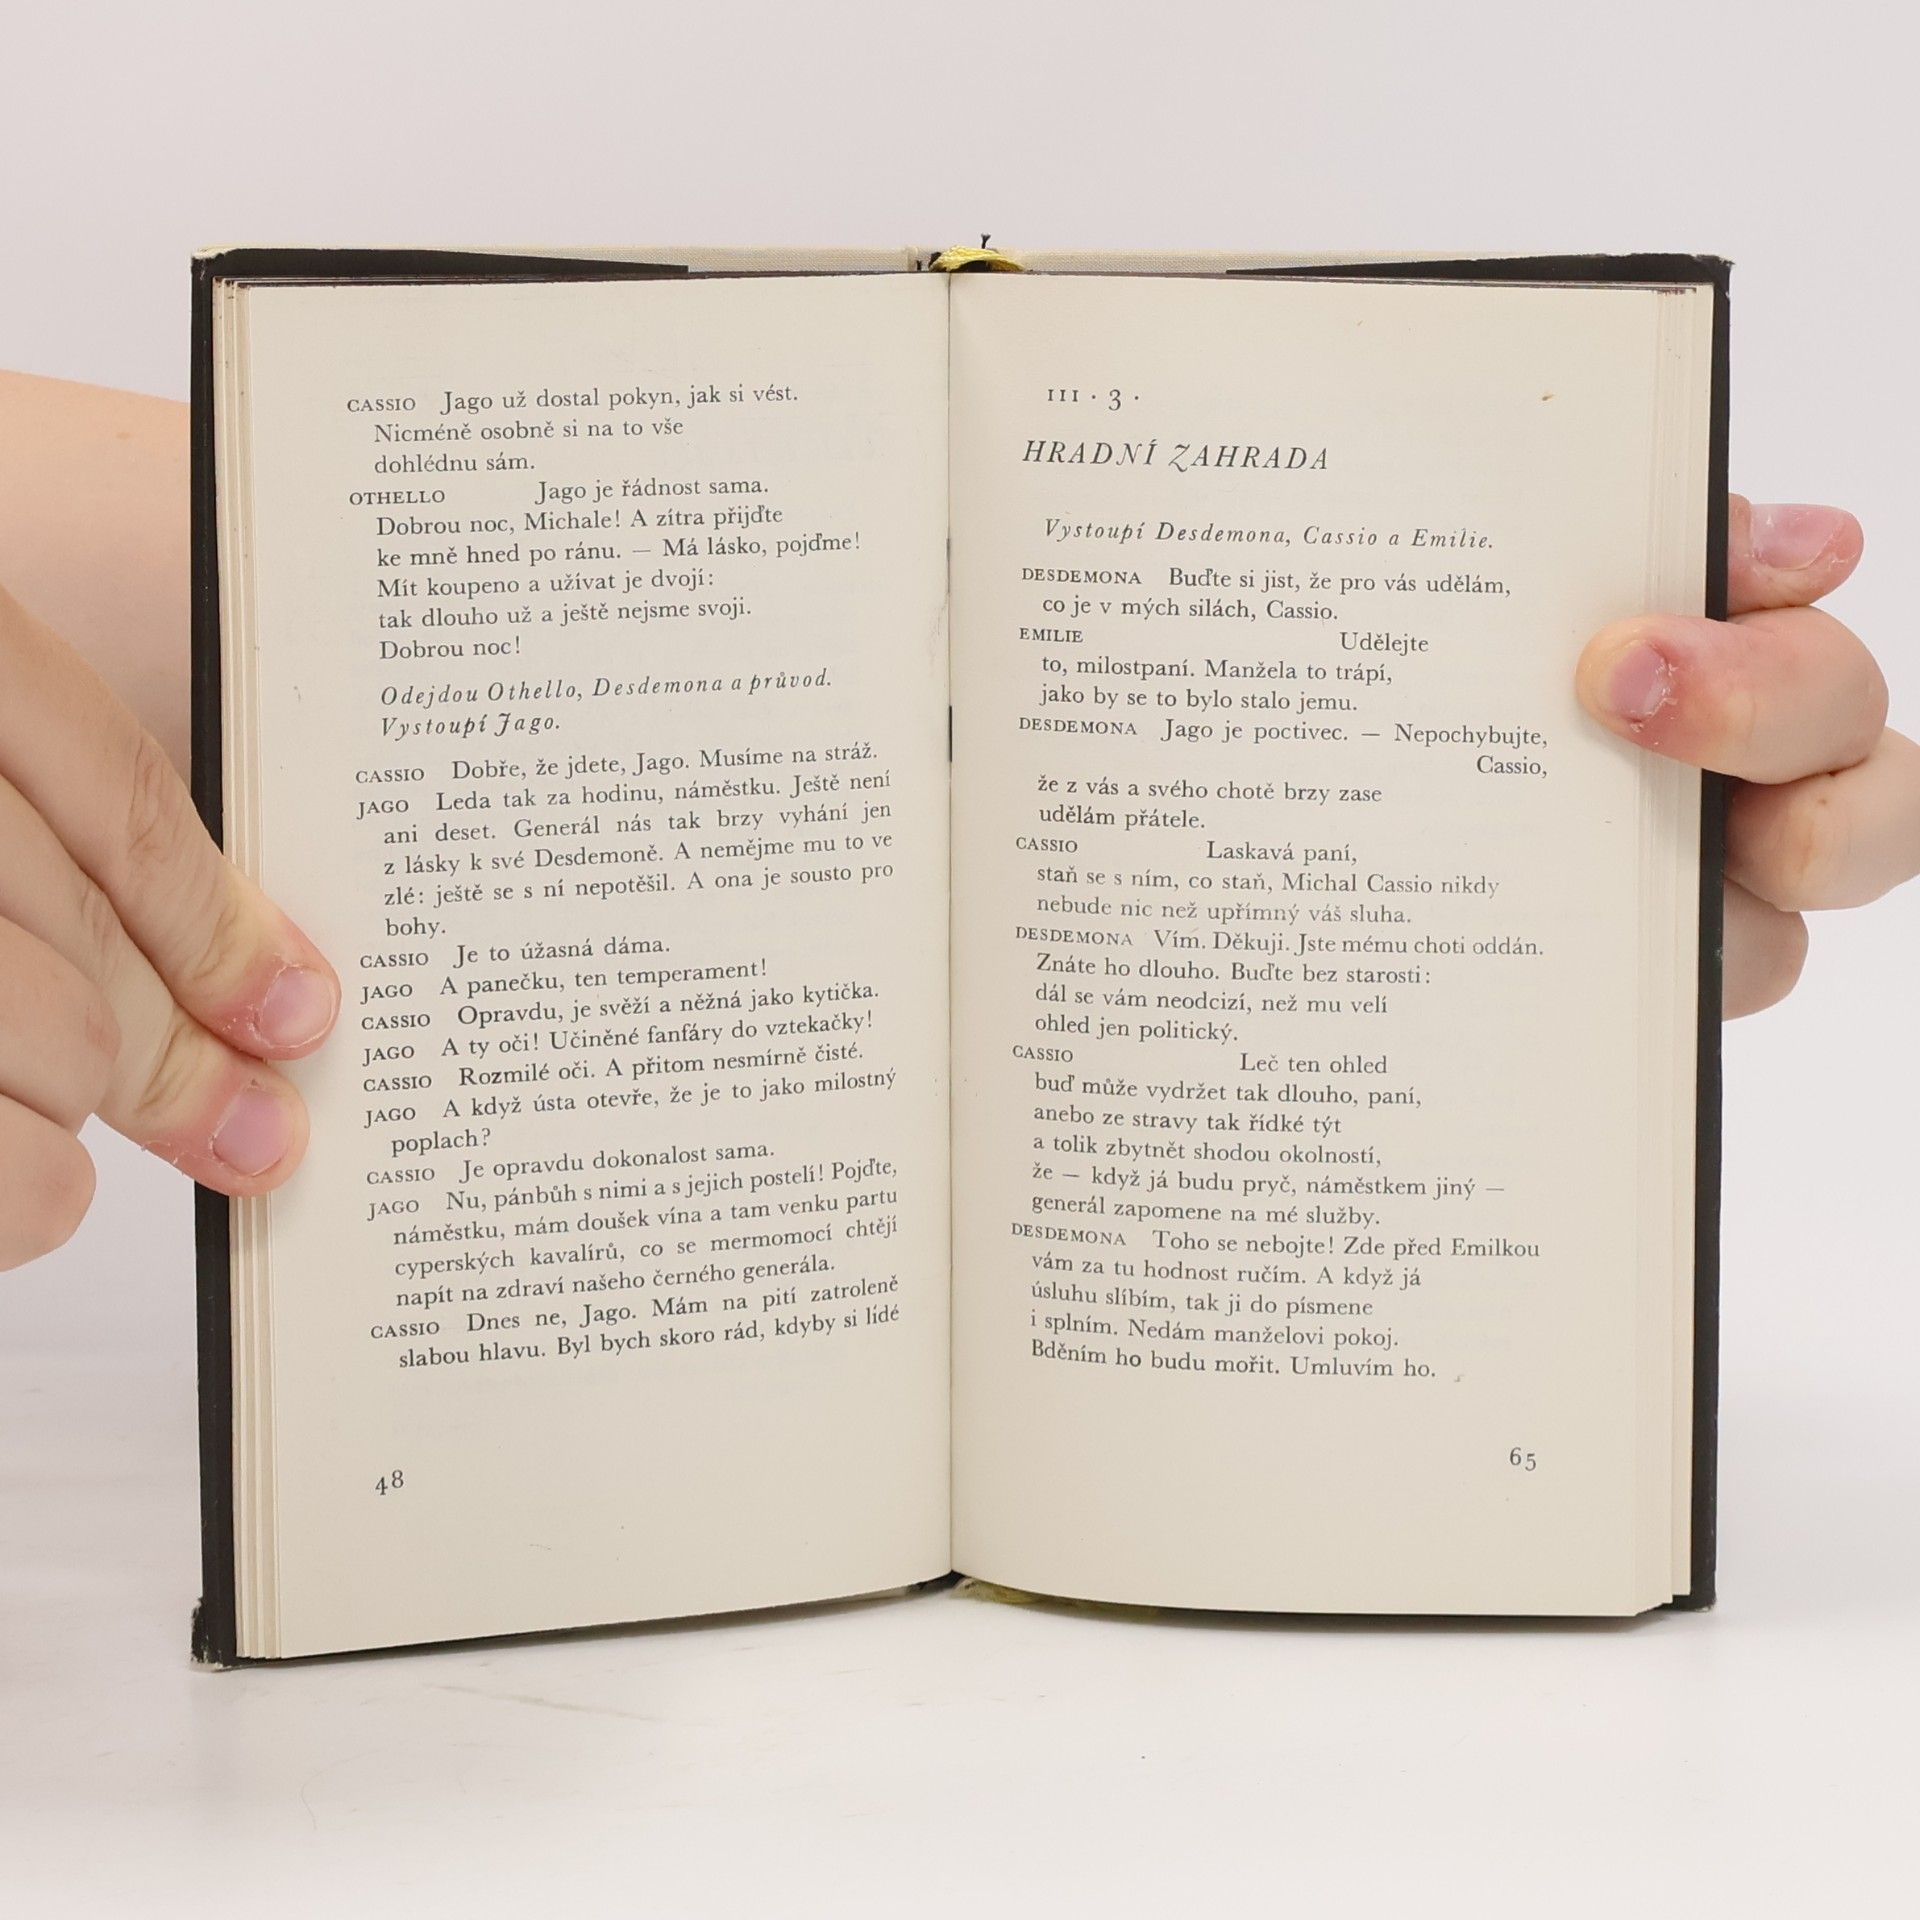 CASSIO Jago už dostal pokyn, jak si vést.
Nicméně osobně si na to vše
dohlédnu sám.
OTHELLO Jago je řádnost sama.
Dobrou noc, Michale! A zítra přijďte
ke mně hned po ránu. — Má lásko, pojďme!
Mít koupeno a užívat je dvojí:
tak dlouho už a ještě nejsme svoji.
Dobrou noc!
Odejdou Othello, Desdemona a průvod.
Vystoupí Jago.
CASSIO Dobře, že jdete, Jago. Musíme na stráž.
JAGO Leda tak za hodinu, náměstku. Ještě není
ani deset. Generál nás tak brzy vyhání jen
z lásky k své Desdemoně. A nemějme mu to ve
zlé: ještě se s ní nepotěšil. A ona je sousto pro
bohy.
CASSIO Je to úžasná dáma.
JAGO A panečku, ten temperament!
CASSIO Opravdu, je svěží a něžná jako kytička.
JAGO A ty oči! Učiněné fanfáry do vztekačky!
CASSIO Rozmilé oči. A přitom nesmírně čisté.
JAGO A když ústa otevře, že je to jako milostný
poplach?
CASSIO Je opravdu dokonalost sama.
JAGO Nu, pánbůh s nimi a s jejich postelí! Pojďte,
náměstku, mám doušek vína a tam venku partu
cyperských kavalírů, co se mermomocí chtějí
napít na zdraví našeho černého generála.
CASSIO Dnes ne, Jago. Mám na pití zatroleně
slabou hlavu. Byl bych skoro rád, kdyby si lidé
48
III · 3 ·
HRADNÍ ZAHRADA
Vystoupí Desdemona, Cassio a Emilie.
DESDEMONA Buďte si jist, že pro vás udělám,
co je v mých silách, Cassio.
EMILIE Udělejte
to, milostpaní. Manžela to trápí,
jako by se to bylo stalo jemu.
DESDEMONA Jago je poctivec. — Nepochybujte,
Cassio,
že z vás a svého chotě brzy zase
udělám přátele.
CASSIO Laskavá paní,
staň se s ním, co staň, Michal Cassio nikdy
nebude nic než upřímný váš sluha.
DESDEMONA Vím. Děkuji. Jste mému choti oddán.
Znáte ho dlouho. Buďte bez starosti:
dál se vám neodcizí, než mu velí
ohled jen politický.
CASSIO Leč ten ohled
buď může vydržet tak dlouho, paní,
anebo ze stravy tak řídké týt
a tolik zbytnět shodou okolností,
že — když já budu pryč, náměstkem jiný —
generál zapomene na mé služby.
DESDEMONA Toho se nebojte! Zde před Emilkou
vám za tu hodnost ručím. A když já
úsluhu slíbím, tak ji do písmene
i splním. Nedám manželovi pokoj.
Bděním ho budu mořit. Umluvím ho.
65